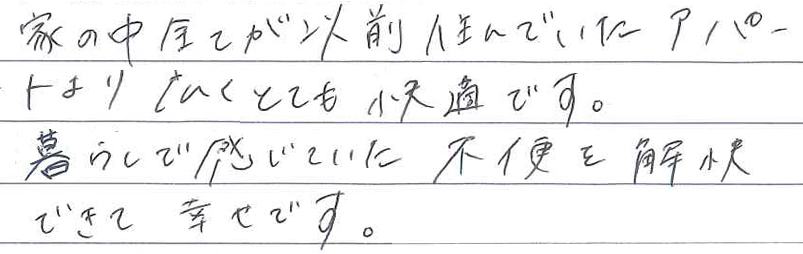 家の中全てが以前住んでいたアパー
トより広くとても快適です。
暮らしで感じていた不便を解快
できて幸せです。